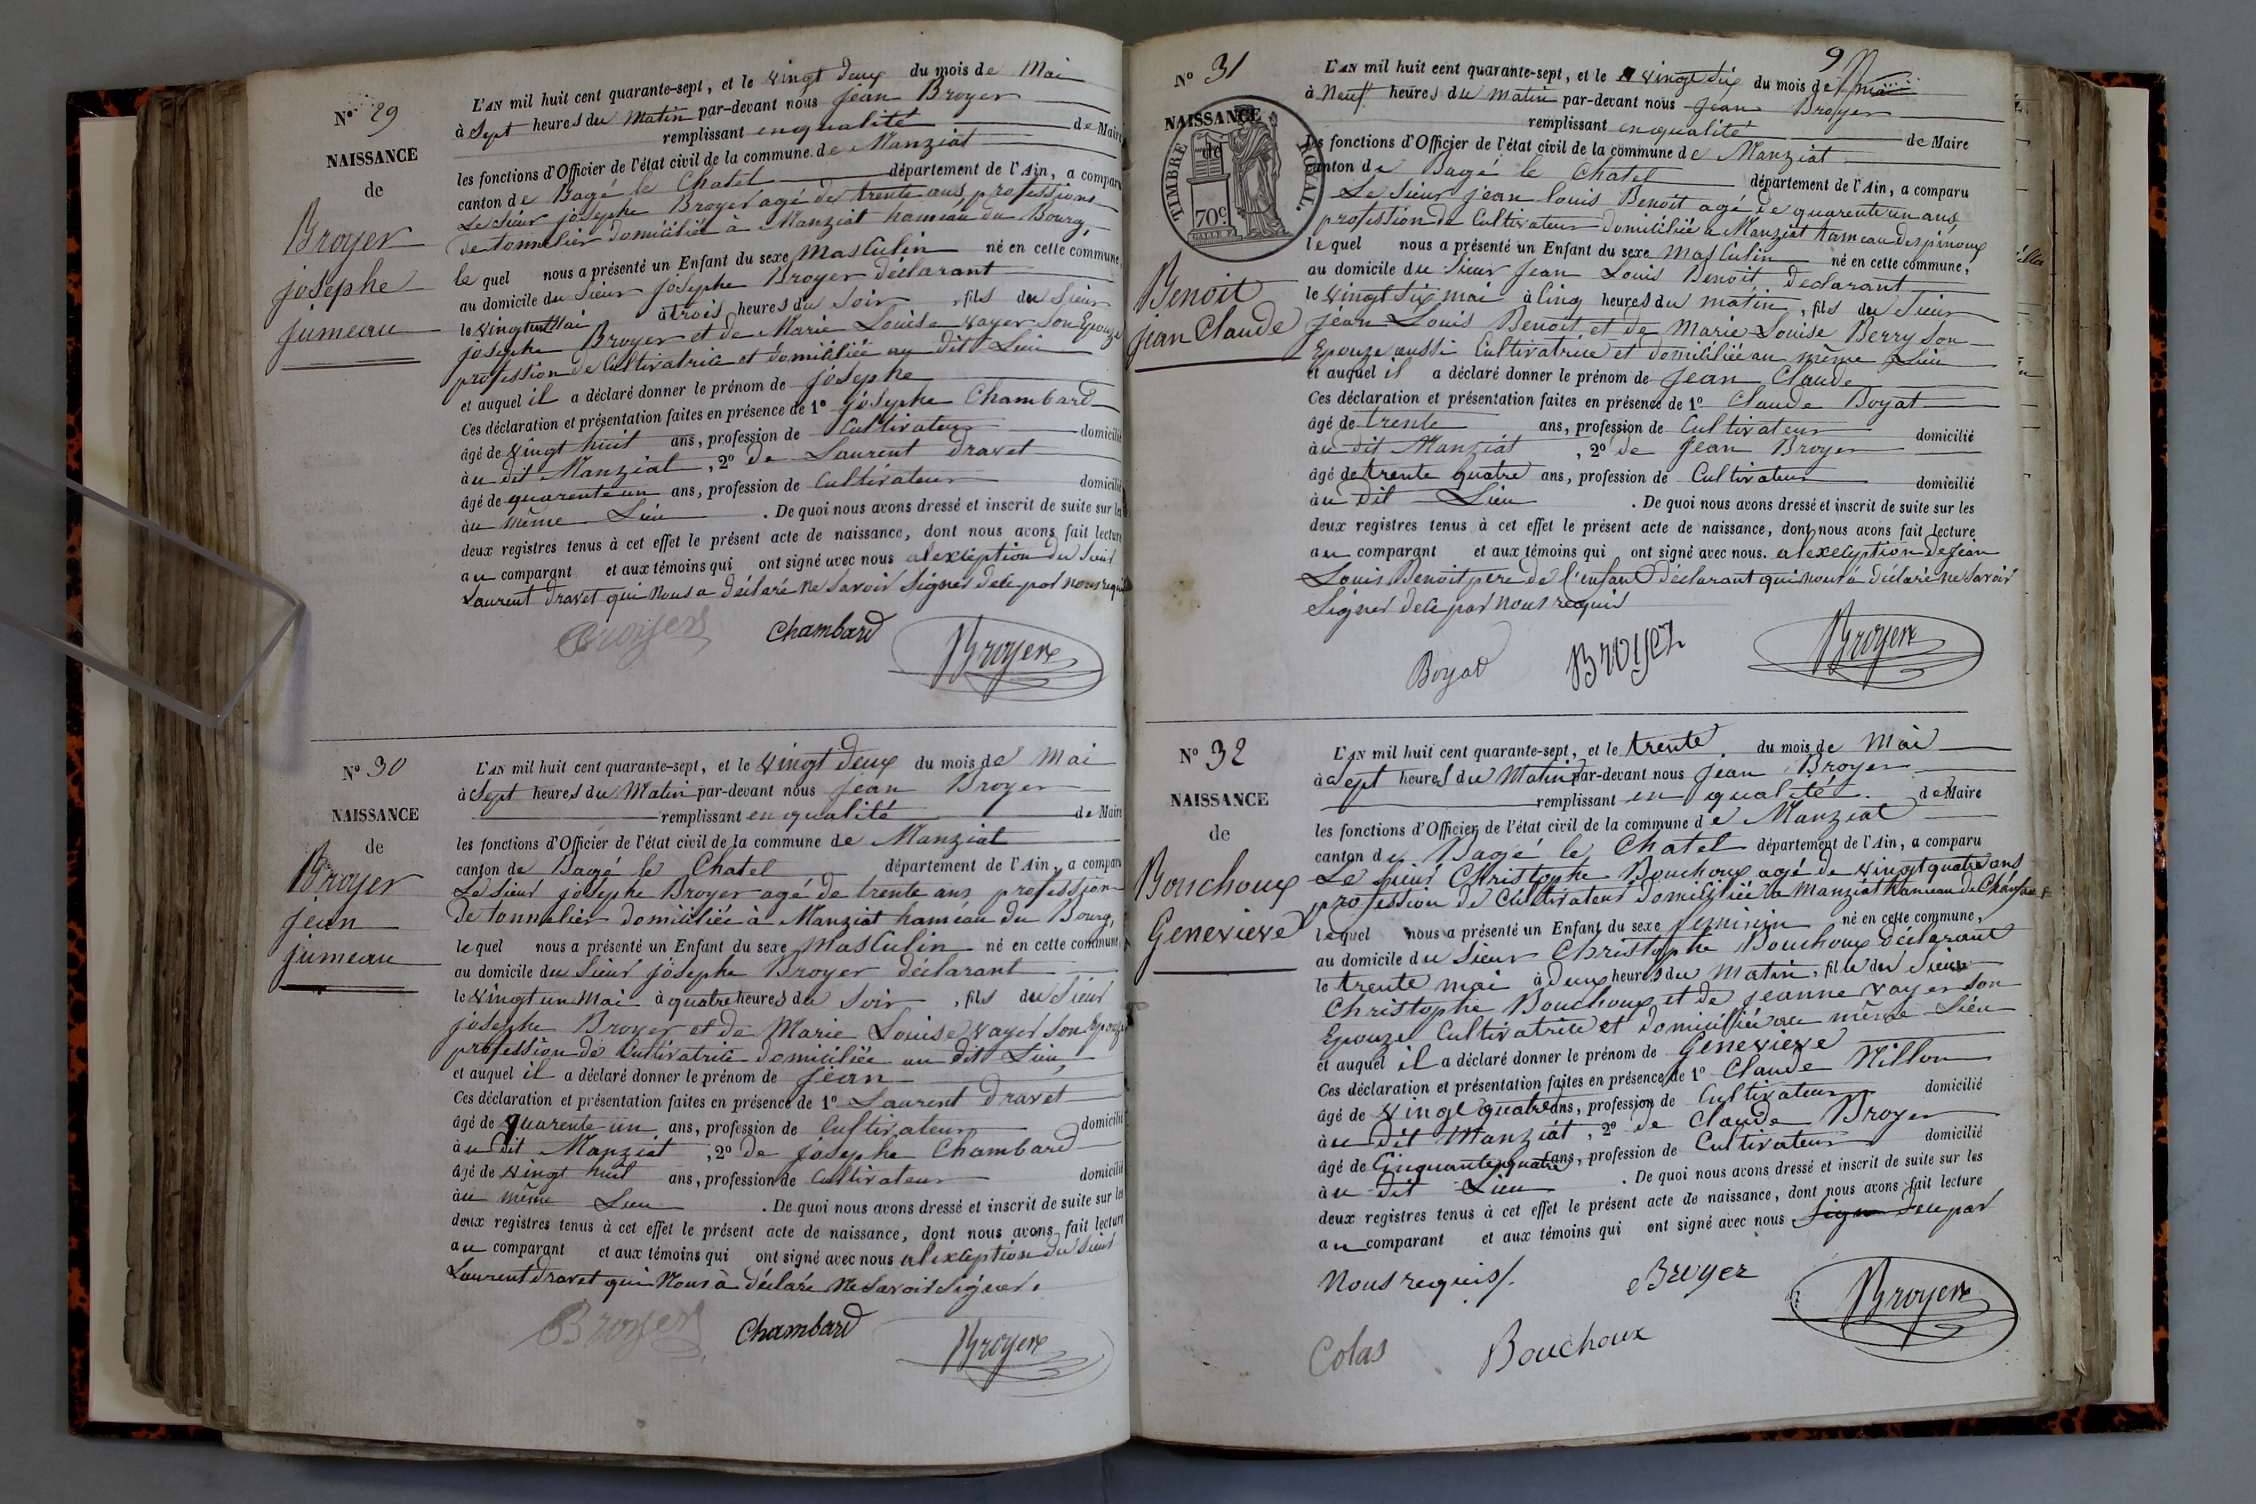 N° 29
NAISSANCE
de
Broyer
josephe
jumeau
L'AN mil huit cent quarante-sept, et le vingt deux du mois de Mai
à Sept heures du Matin par-devant nous jean Broyer
remplissant en qualité de Maire
les fonctions d'Officier de l'état civil de la commune de Manziat
canton de Bagé le Chatel département de l'Ain, a comparu
Le Sieur josephe Broyer agé de trente ans, profession
de tonnelier domiciliée à Manziat hameau du Bourg
le quel nous a présenté un Enfant du sexe Masculin né en cette commune,
au domicile du Sieur josephe Broyer déclarant
le vingt un Mai à trois heures du Soir, fils du Sieur
josephe Broyer et de Marie Louise vayer Son Epouze
profession de Cultivatrice et domiciliée au dit Lieu
et auquel il a déclaré donner le prénom de josephe
Ces déclaration et présentation faites en présence de 1° josephe Chambard
âgé de vingt huit ans, profession de Cultivateur domicilié
à u dit Manziat, 2° de Laurent dravet
âgé de quarente un ans, profession de Cultivateur domicilié
à u même Lieu. De quoi nous avons dressé et inscrit de suite sur les
deux registres tenus à cet effet le présent acte de naissance, dont nous avons fait lecture
a u comparant et aux témoins qui ont signé avec nous al exception du Sieur
Laurent dravet qui nous a déclaré ne savoir Signer de ce par nous requis
Broyer Chambard Broyer
N° 30
NAISSANCE
de
Broyer
jean
jumeau
L'AN mil huit cent quarante-sept, et le vingt deux du mois de Mai
à Sept heures du Matin par-devant nous jean Broyer
remplissant en qualité de Maire
les fonctions d'Officier de l'état civil de la commune de Manziat
canton de Bagé le Chatel département de l'Ain, a comparu
Le Sieur josephe Broyer agé de trente ans, profession
de tonnelier domiciliée à Manziat hameau du Bourg,
le quel nous a présenté un Enfant du sexe Masculin né en cette commune,
au domicile du Sieur josephe Broyer déclarant
le vingt un Mai à quatre heures du Soir, fils du Sieur
josephe Broyer et de Marie Louise vayer Son Epouze
profession de Cultivatrice domiciliée au dit Lieu
et auquel il a déclaré donner le prénom de jean
Ces déclaration et présentation faites en présence de 1° Laurent dravet
âgé de quarente un ans, profession de Cultivateur domicilié
à u dit Manziat, 2° de josephe Chambard
âgé de vingt huit ans, profession de Cultivateur domicilié
à u même Lieu. De quoi nous avons dressé et inscrit de suite sur les
deux registres tenus à cet effet le présent acte de naissance, dont nous avons fait lecture
a u comparant et aux témoins qui ont signé avec nous al exception du Sieur
Laurent dravet qui Nous à déclaré ne Savoir Signer.
Broyer Chambard Broyer
9
N° 31
NAISSANCE
de
TIMBRE ROYAL.
70c
Benoit
jean Claude
L'AN mil huit cent quarante-sept, et le vingt six du mois de mai
à Neuf heures du matin par-devant nous jean Broyer
remplissant en qualité de Maire
les fonctions d'Officier de l'état civil de la commune de Manziat
canton de Bagé le Chatel département de l'Ain, a comparu
Le Sieur jean louis Benoit agé de quarente un ans
profession de Cultivateur domiciliée a Manziat hameau des pinoux
le quel nous a présenté un Enfant du sexe masculin né en cette commune,
au domicile du Sieur Jean Louis Benoit declarant
le vingt six mai à Cinq heures du matin, fils du Sieur
jean Louis Benoit et de Marie Louise Berry Son
Epouze aussi Cultivatrice et domiciliée au même Lieu
et auquel il a déclaré donner le prénom de jean Claude
Ces déclaration et présentation faites en présence de 1° Claude Boyat
âgé de trente ans, profession de Cultivateur domicilié
à u dit Manziat, 2° de Jean Broyer
âgé de trente quatre ans, profession de Cultivateur domicilié
à u dit Lieu. De quoi nous avons dressé et inscrit de suite sur les
deux registres tenus à cet effet le présent acte de naissance, dont nous avons fait lecture
a u comparant et aux témoins qui ont signé avec nous. al exception de jean
Louis Benoit pere de l'enfant déclarant qui nous à déclaré ne Savoir
Signer de ce par nous requis
Boyat Broyer Broyer
N° 32
NAISSANCE
de
Bouchoux
Genevieve
L'AN mil huit cent quarante-sept, et le trente du mois de Mai
à Sept heures du Matin par-devant nous jean Broyer
remplissant en qualité de Maire
les fonctions d'Officier de l'état civil de la commune de Manziat
canton de Bagé le Chatel département de l'Ain, a comparu
Le Sieur Christophe Bouchoux agé de vingt quatre ans
profession de Cultivateur domiciliée a Manziat hameau de
le quel nous a présenté un Enfant du sexe feminin né en cette commune,
au domicile du Sieur Christophe Bouchoux déclarant
le trente mai à deux heures du Matin, fille du Sieur
Christophe Bouchoux et de jeanne vayer Son
Epouze Cultivatrice et domiciliée au même Lieu
et auquel il a déclaré donner le prénom de Genevieve
Ces déclaration et présentation faites en présence de 1° Claude
âgé de vingt quatre ans, profession de Cultivateur domicilié
à u dit Manziat, 2° de Claude Broyer
âgé de Cinquante quatre ans, profession de Cultivateur domicilié
à u dit Lieu. De quoi nous avons dressé et inscrit de suite sur les
deux registres tenus à cet effet le présent acte de naissance, dont nous avons fait lecture
a u comparant et aux témoins qui ont signé avec nous de ce par
Nous requis.
Broyer Broyer
Colas Bouchoux